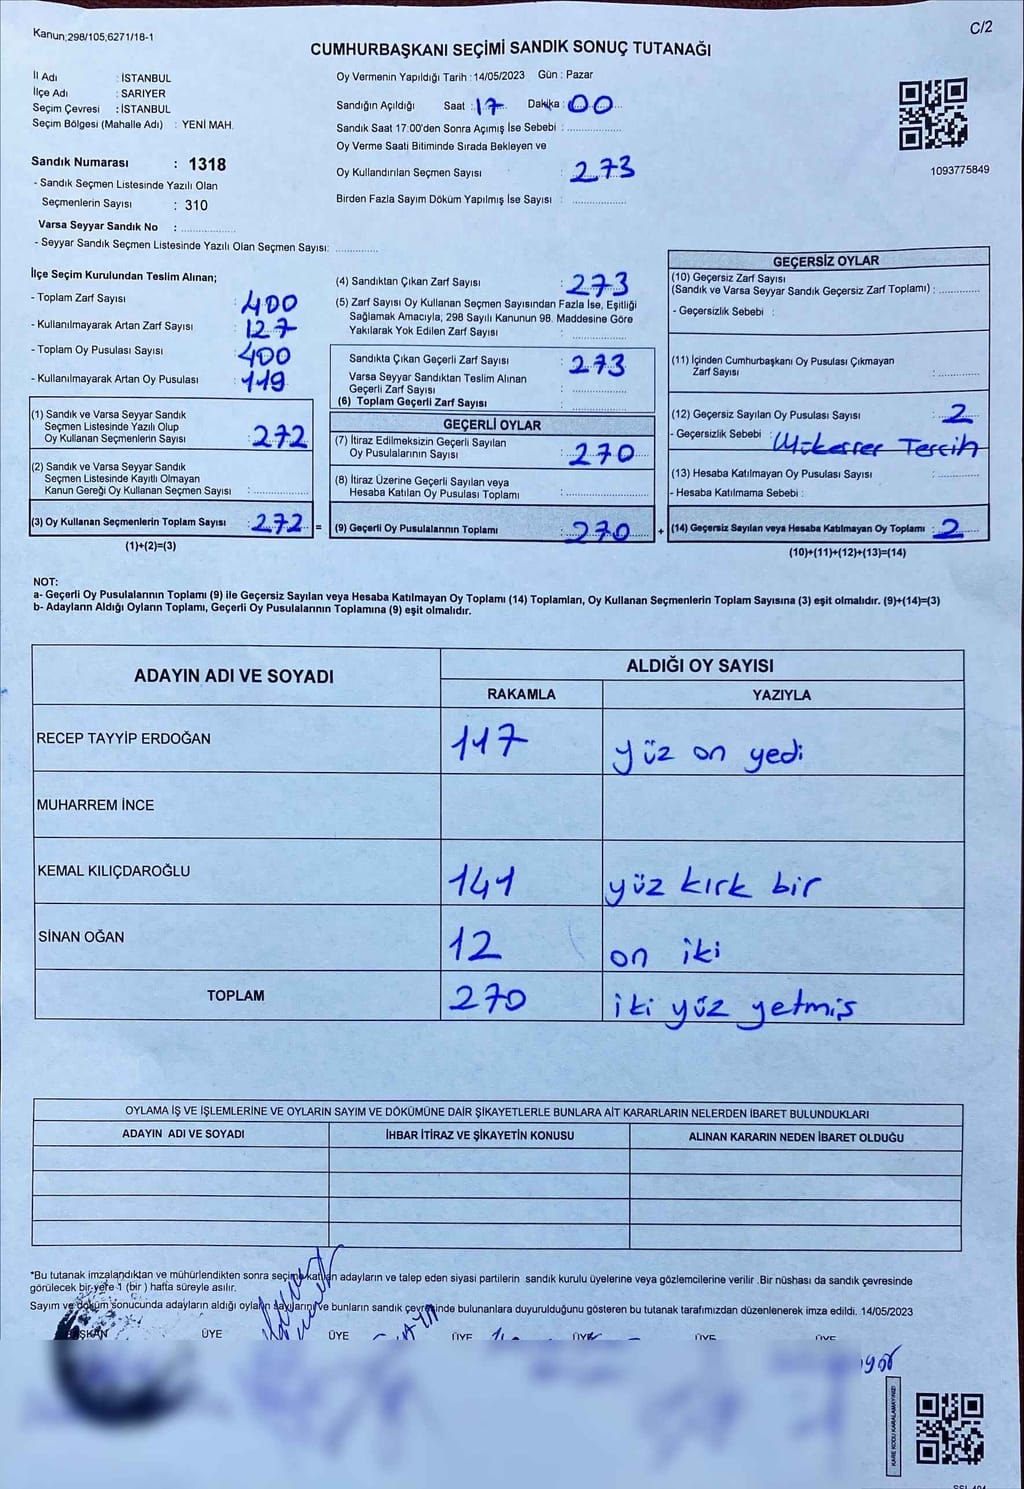 Kanun;298/105,6271/18-1
C/2
CUMHURBAŞKANI SEÇİMİ SANDIK SONUÇ TUTANAĞI
İl Adı : İSTANBUL
İlçe Adı : SARIYER
Seçim Çevresi : İSTANBUL
Seçim Bölgesi (Mahalle Adı) : YENİ MAH.
Sandık Numarası : 1318
- Sandık Seçmen Listesinde Yazılı Olan
Seçmenlerin Sayısı : 310
Varsa Seyyar Sandık No :
- Seyyar Sandık Seçmen Listesinde Yazılı Olan Seçmen Sayısı:
Oy Vermenin Yapıldığı Tarih : 14/05/2023 Gün : Pazar
Sandığın Açıldığı Saat : 17 Dakika : 00
Sandık Saat 17:00'den Sonra Açımış İse Sebebi :
Oy Verme Saati Bitiminde Sırada Bekleyen ve
Oy Kullandırılan Seçmen Sayısı : 273
Birden Fazla Sayım Döküm Yapılmış İse Sayısı :
1093775849
İlçe Seçim Kurulundan Teslim Alınan;
- Toplam Zarf Sayısı : 400
- Kullanılmayarak Artan Zarf Sayısı : 127
- Toplam Oy Pusulası Sayısı : 400
- Kullanılmayarak Artan Oy Pusulası : 119
(1) Sandık ve Varsa Seyyar Sandık
Seçmen Listesinde Yazılı Olup
Oy Kullanan Seçmenlerin Sayısı : 272
(2) Sandık ve Varsa Seyyar Sandık
Seçmen Listesinde Kayıtlı Olmayan
Kanun Gereği Oy Kullanan Seçmen Sayısı :
(3) Oy Kullanan Seçmenlerin Toplam Sayısı : 272 =
(1)+(2)=(3)
(4) Sandıktan Çıkan Zarf Sayısı : 273
(5) Zarf Sayısı Oy Kullanan Seçmen Sayısından Fazla İse, Eşitliği
Sağlamak Amacıyla; 298 Sayılı Kanunun 98. Maddesine Göre
Yakılarak Yok Edilen Zarf Sayısı :
Sandıkta Çıkan Geçerli Zarf Sayısı : 273
Varsa Seyyar Sandıktan Teslim Alınan
Geçerli Zarf Sayısı :
(6) Toplam Geçerli Zarf Sayısı :
GEÇERLİ OYLAR
(7) İtiraz Edilmeksizin Geçerli Sayılan
Oy Pusulalarının Sayısı : 270
(8) İtiraz Üzerine Geçerli Sayılan veya
Hesaba Katılan Oy Pusulası Toplamı :
(9) Geçerli Oy Pusulalarının Toplamı : 270 +
GEÇERSİZ OYLAR
(10) Geçersiz Zarf Sayısı
(Sandık ve Varsa Seyyar Sandık Geçersiz Zarf Toplamı) :
- Geçersizlik Sebebi :
(11) İçinden Cumhurbaşkanı Oy Pusulası Çıkmayan
Zarf Sayısı :
(12) Geçersiz Sayılan Oy Pusulası Sayısı : 2
- Geçersizlik Sebebi : Mükerrer Tercih
(13) Hesaba Katılmayan Oy Pusulası Sayısı :
- Hesaba Katılmama Sebebi :
(14) Geçersiz Sayılan veya Hesaba Katılmayan Oy Toplamı : 2
(10)+(11)+(12)+(13)=(14)
NOT:
a- Geçerli Oy Pusulalarının Toplamı (9) ile Geçersiz Sayılan veya Hesaba Katılmayan Oy Toplamı (14) Toplamları, Oy Kullanan Seçmenlerin Toplam Sayısına (3) eşit olmalıdır. (9)+(14)=(3)
b- Adayların Aldığı Oyların Toplamı, Geçerli Oy Pusulalarının Toplamına (9) eşit olmalıdır.
ADAYIN ADI VE SOYADI ALDIĞI OY SAYISI
RAKAMLA YAZIYLA
RECEP TAYYİP ERDOĞAN 117 yüz on yedi
MUHARREM İNCE
KEMAL KILIÇDAROĞLU 141 yüz kırk bir
SİNAN OĞAN 12 on iki
TOPLAM 270 iki yüz yetmiş
OYLAMA İŞ VE İŞLEMLERİNE VE OYLARIN SAYIM VE DÖKÜMÜNE DAİR ŞİKAYETLERLE BUNLARA AİT KARARLARIN NELERDEN İBARET BULUNDUKLARI
ADAYIN ADI VE SOYADI İHBAR İTİRAZ VE ŞİKAYETİN KONUSU ALINAN KARARIN NEDEN İBARET OLDUĞU
*Bu tutanak imzalandıktan ve mühürlendikten sonra seçime katılan adayların ve talep eden siyasi partilerin sandık kurulu üyelerine veya gözlemcilerine verilir .Bir nüshası da sandık çevresinde
görülecek bir yere 1 (bir ) hafta süreyle asılır.
Sayım ve döküm sonucunda adayların aldığı oyların sayılarını ve bunların sandık çevresinde bulunanlara duyurulduğunu gösteren bu tutanak tarafımızdan düzenlenerek imza edildi. 14/05/2023
BAŞKAN ÜYE ÜYE ÜYE ÜYE ÜYE ÜYE
KARE KODU KARALAMAYINIZ!